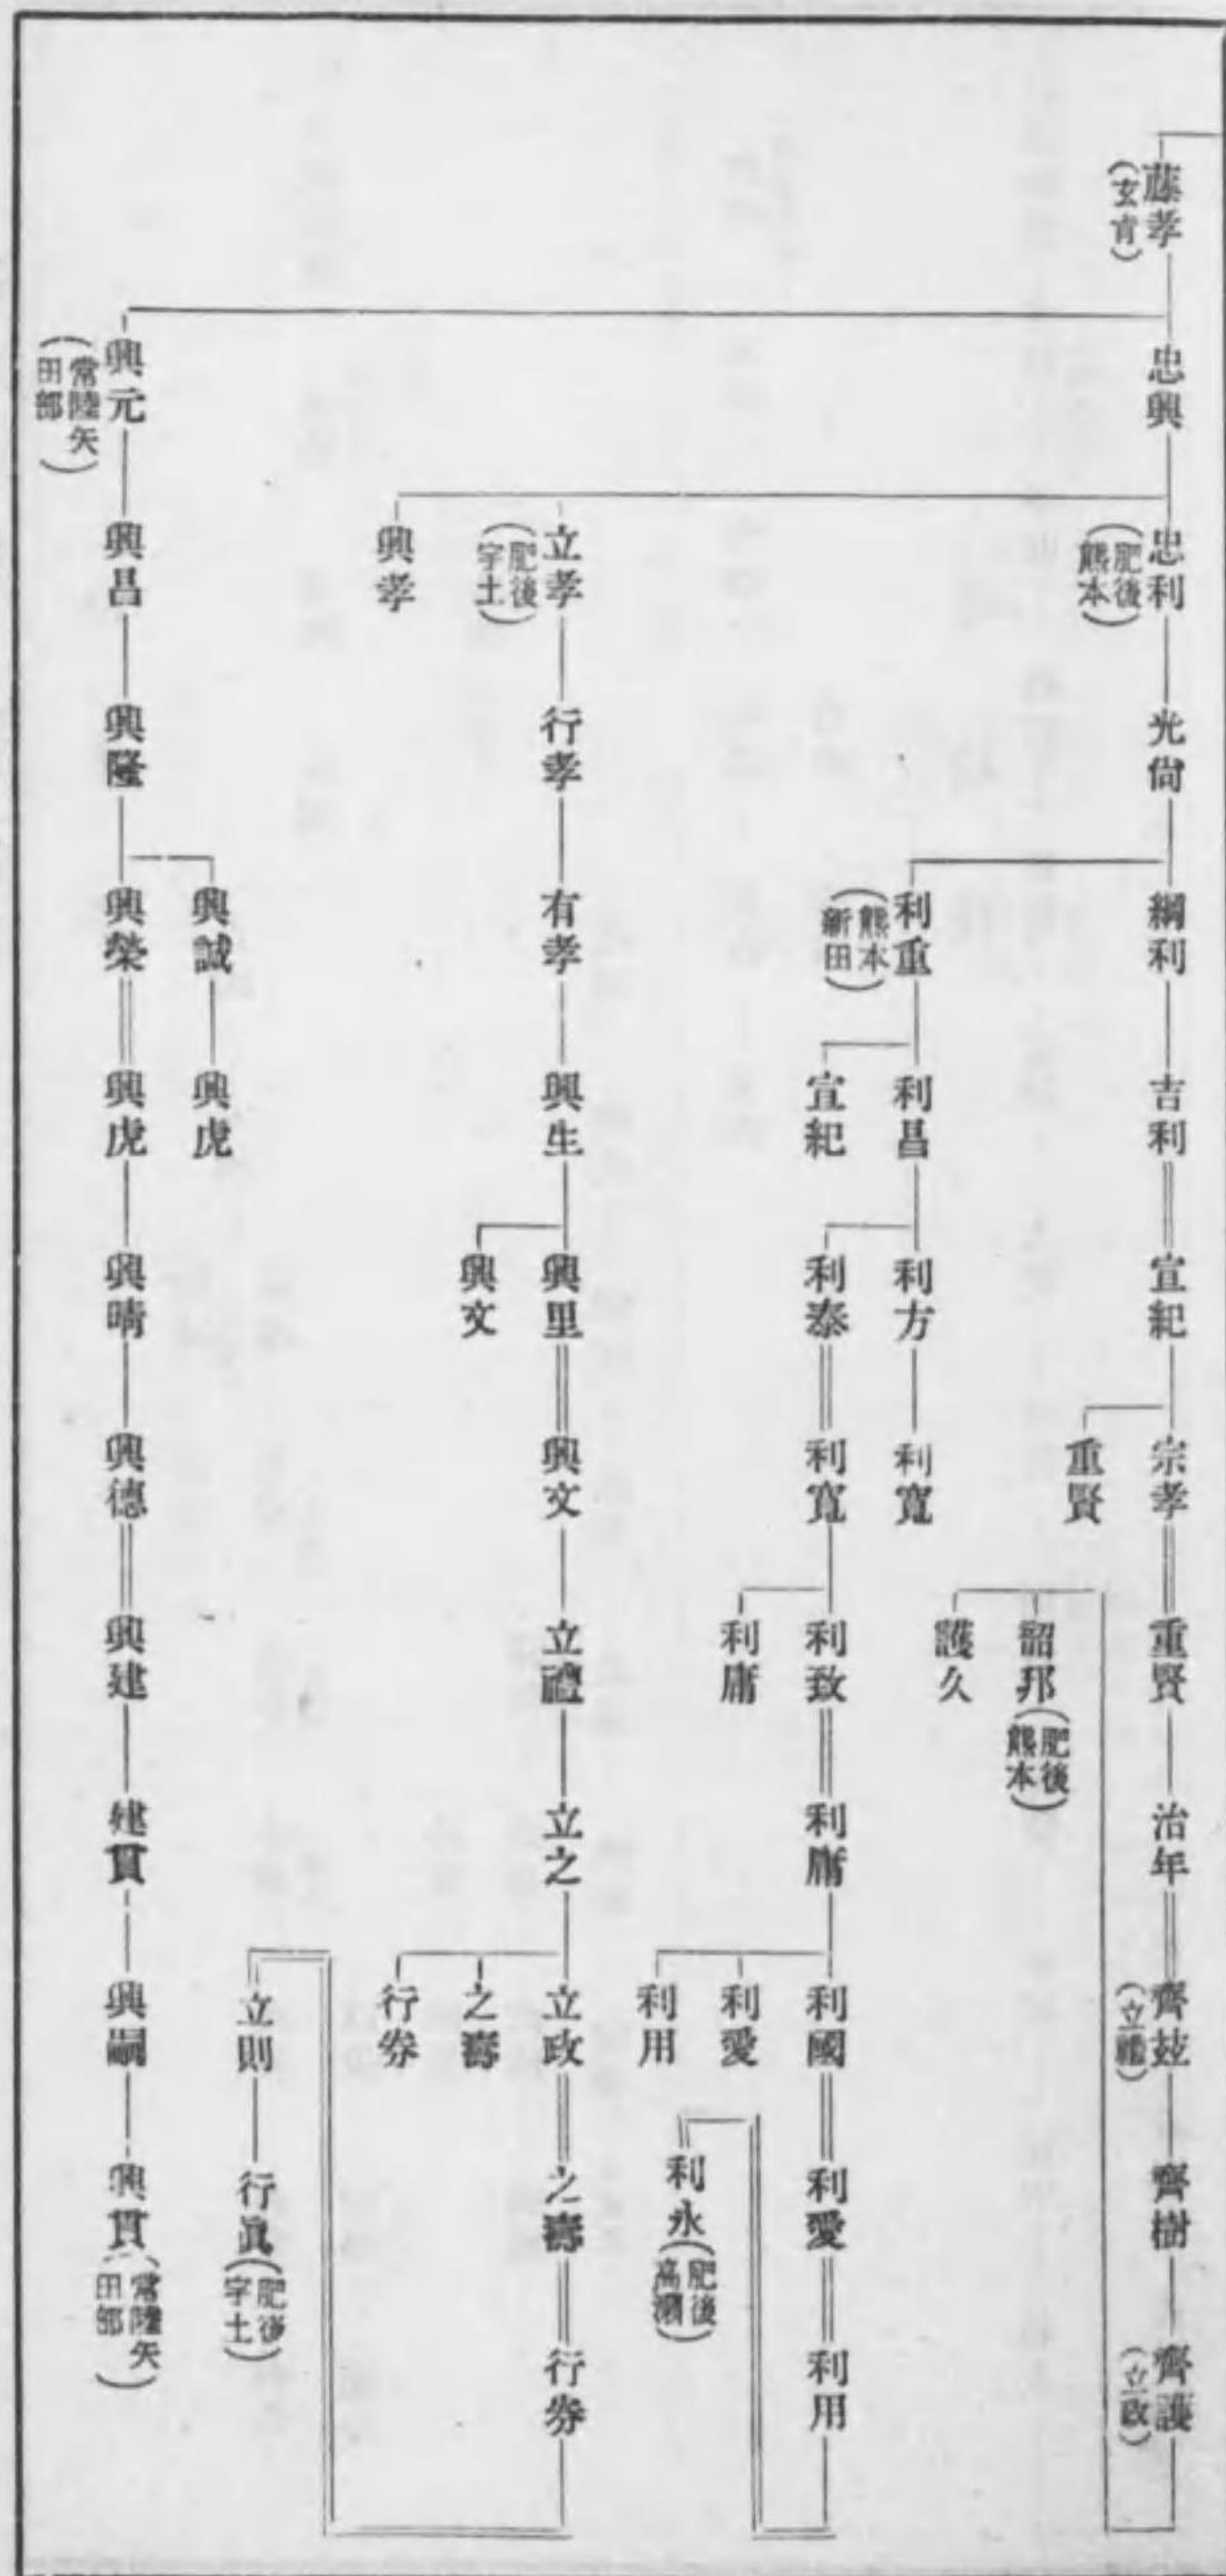 藤孝
(玄旨)
忠興
忠利
(肥後
熊本)
光尙
綱利
吉利
宣紀
宗孝
重賢
治年
齊玆
(立禮)
齊樹
齊護
(立政)
重賢
韶邦
(肥後
熊本)
護久
利重
(熊本
新田)
利昌
利方
利寬
宣紀
利泰
利寬
利致
利庸
利國
利愛
利用
利庸
利愛
利用
利永
(肥後
高瀨)
立孝
(肥後
宇土)
行孝
有孝
興生
興里
興文
立禮
立之
立政
之壽
行芬
興文
之壽
行芬
興孝
立則
行眞
(肥後
宇土)
興誠
興虎
興元
(常陸矢
田部)
興昌
興隆
興榮
興虎
興晴
興德
興建
建貫
興嗣
興貫
(常陸矢
田部)